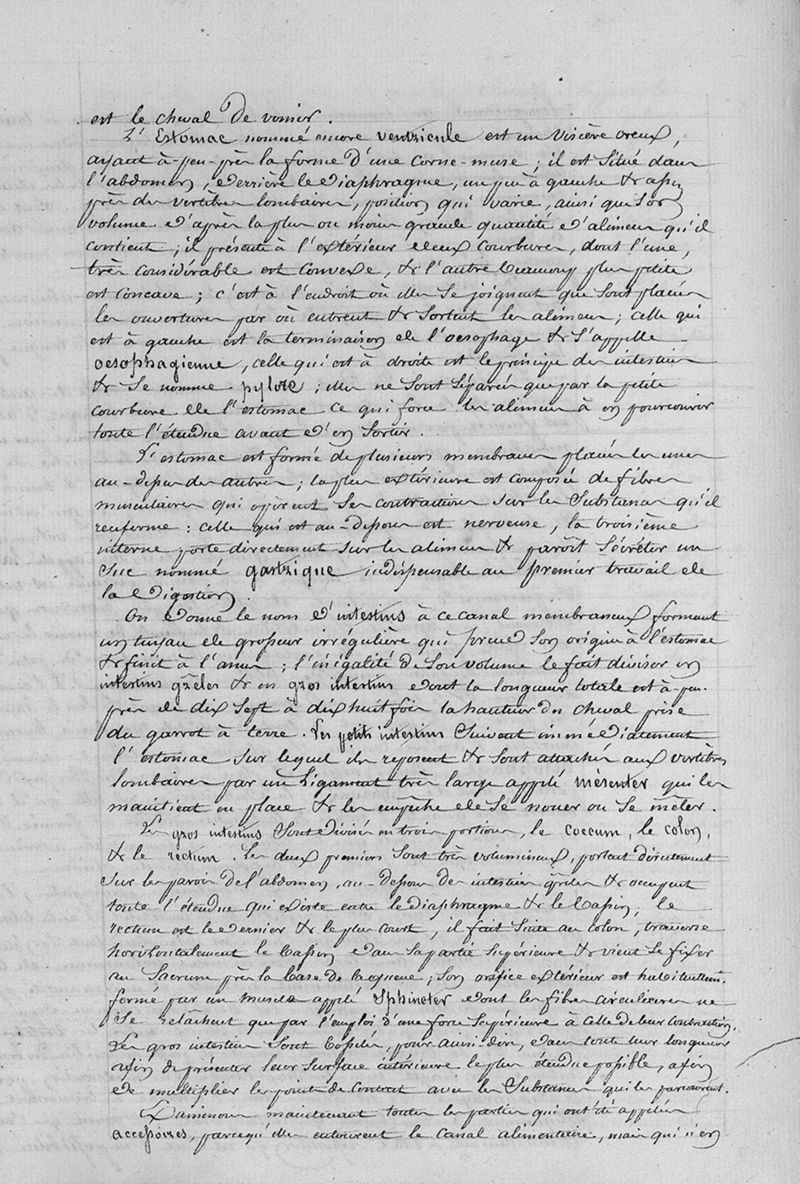 est le cheval de vomir.
L'Estomac nommé encore ventricule est un viscère creux,
ayant à-peu-près la forme d'une corne-muse; il est situé dans
l'abdomen, derrière le diaphragme, un peu à gauche & assez
près des vertèbres lombaires, position qui varie, ainsi que son
volume d'après la plus ou moins grande quantité d'alimens qu'il
contient; il présente à l'extérieur deux courbures, dont l'une,
très considérable est convexe, & l'autre beaucoup plus petite
est concave; c'est à l'endroit où elles se joignent que sont placées
les ouvertures par où entrent & sortent les alimens; celle qui
est à gauche est la terminaison de l'oesophage & s'appelle
oesophagienne, celle qui est à droite est le principe des intestins
& se nomme pylore; elles ne sont séparées que par la petite
courbure de l'estomac ce qui force les alimens à en parcourir
toute l'étendue avant d'en sortir.
L'estomac est formé de plusieurs membranes placées les unes
au-dessus des autres; la plus extérieure est composée de fibres
musculaires qui opèrent ses contractions sur les substances qu'il
renferme: celle qui est au-dessous est nerveuse, la troisième
interne porte directement sur les alimens & paroît sécréter un
suc nommé gastrique indispensable au premier travail de
la digestion.
On donne le nom d'intestins à ce canal membraneux formant
un tuyau de grosseur irrégulière qui prend son origine à l'estomac
& finit à l'anus; l'inégalité de son volume le fait diviser en
intestins grêles & en gros intestins dont la longueur totale est à-peu-
près de dix sept à dix huit fois la hauteur du cheval prise
du garrot à terre. Les petits intestins suivent immédiatement
l'estomac sur lequel ils reposent & sont attachés aux vertèbres
lombaires par un ligament très large appelé mésenter qui les
maintient en place & les empêche de se nouer ou se mêler.
Les gros intestins sont divisés en trois portions, le coecum, le colon,
& le rectum. Les deux premiers sont très volumineux, portent directement
sur les parois de l'abdomen, au-dessous des intestins grêles & occupent
toute l'étendue qui existe entre le diaphragme & le bassin; le
rectum est le dernier & le plus court, il fait suite au colon, traverse
horisontalement le bassin dans sa partie supérieure & vient se fixer
au sacrum près la base de la queue; son orifice extérieur est habituellem.
fermé par un muscle appelé Sphincter dont les fibres circulaires ne
se relâchent que par l'emploi d'une force supérieure à celle de leur contraction.
Les gros intestins sont bosselés, pour ainsi dire, dans toute leur longueur
afin de présenter leur surface intérieure le plus étendue possible, afin
de multiplier les points de contact avec les substances qui les parcourent.
Examinons maintenant toutes les parties qui ont été appelées
accessoires, parcequ'elles entourent le canal alimentaire, mais qui n'en